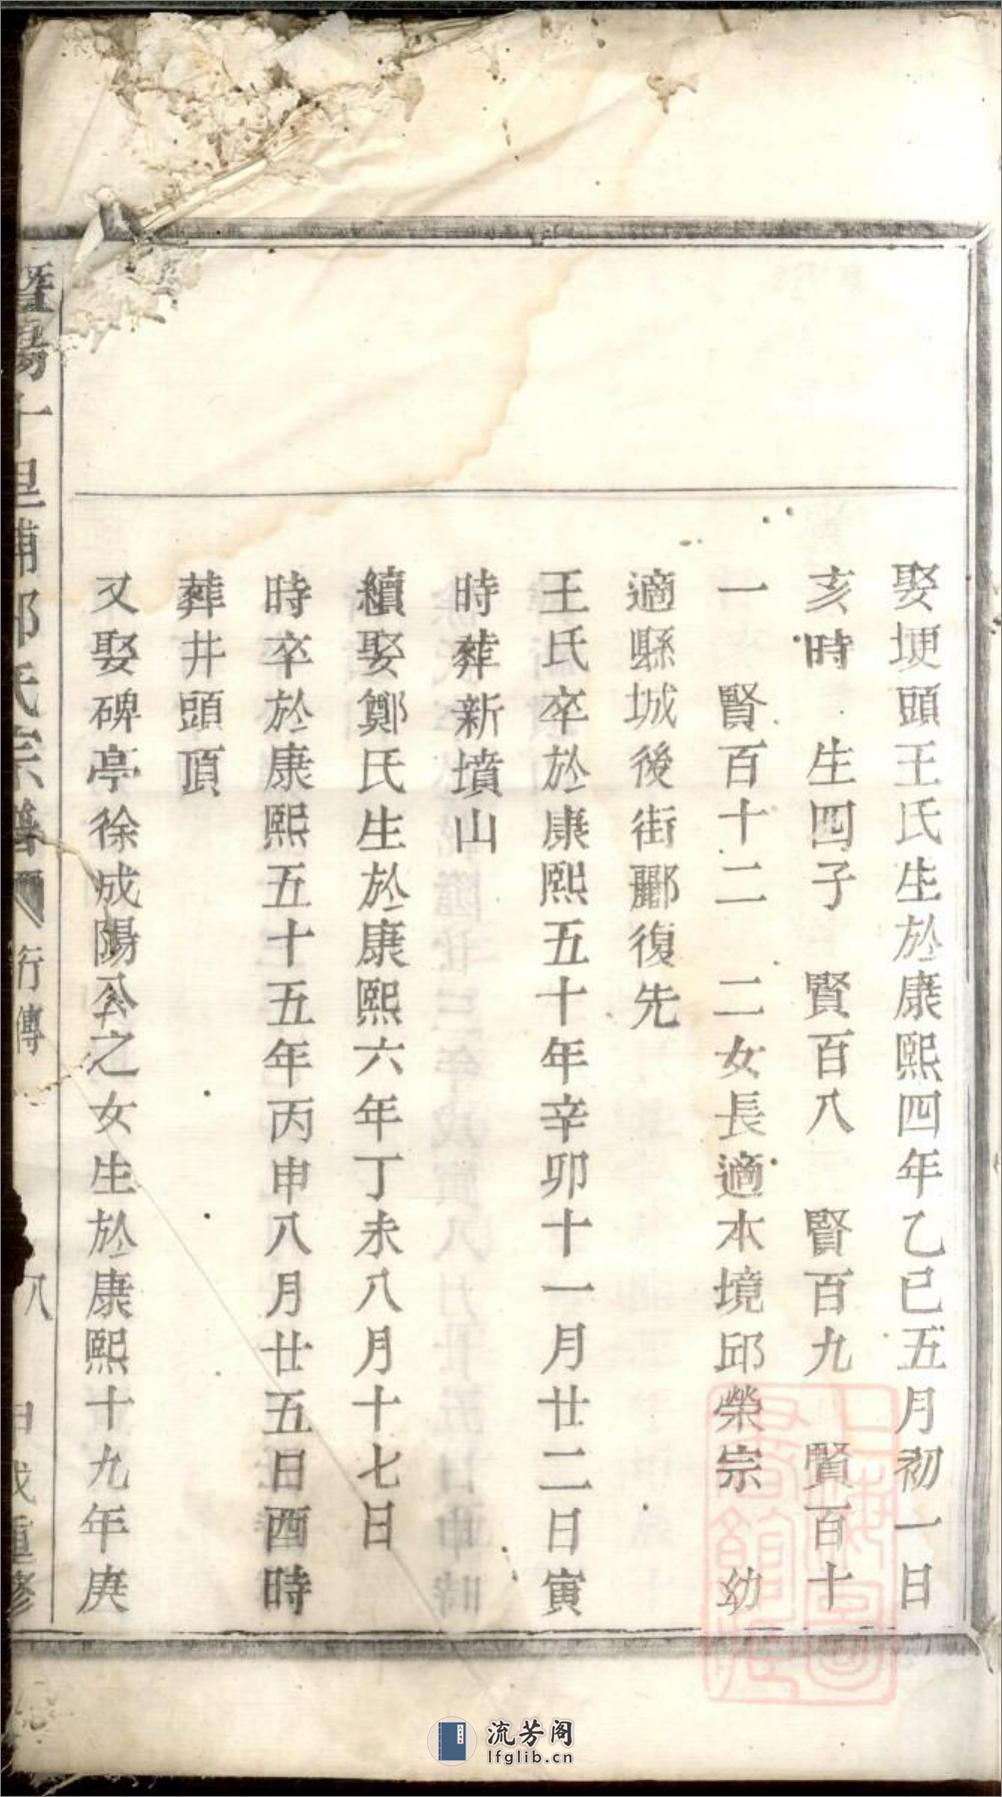 娶埂頭王氏生於康熙四年乙巳五月初一日
亥時 生四子 賢百八 賢百九 賢百十
一 賢百十二 二女長適本境邱榮宗 幼
適縣城後街酈復先
王氏卒於康熙五十年辛卯十一月廿二日寅
時葬新墳山
續娶鄭氏生於康熙六年丁未八月十七日
時卒於康熙五十五年丙申八月廿五日酉時
葬井頭頂
又娶碑亭徐成陽公之女生於康熙十九年庚
暨陽十里埔邱氏宗譜 行傳 八 甲戌重修
上海圖書館藏
流芳阁
lfglib.cn